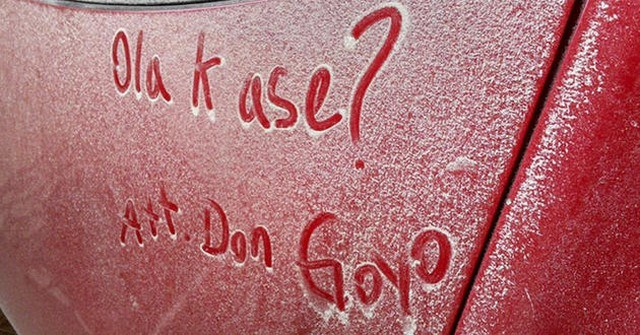 Ola k ase?
Att. Don Goyo